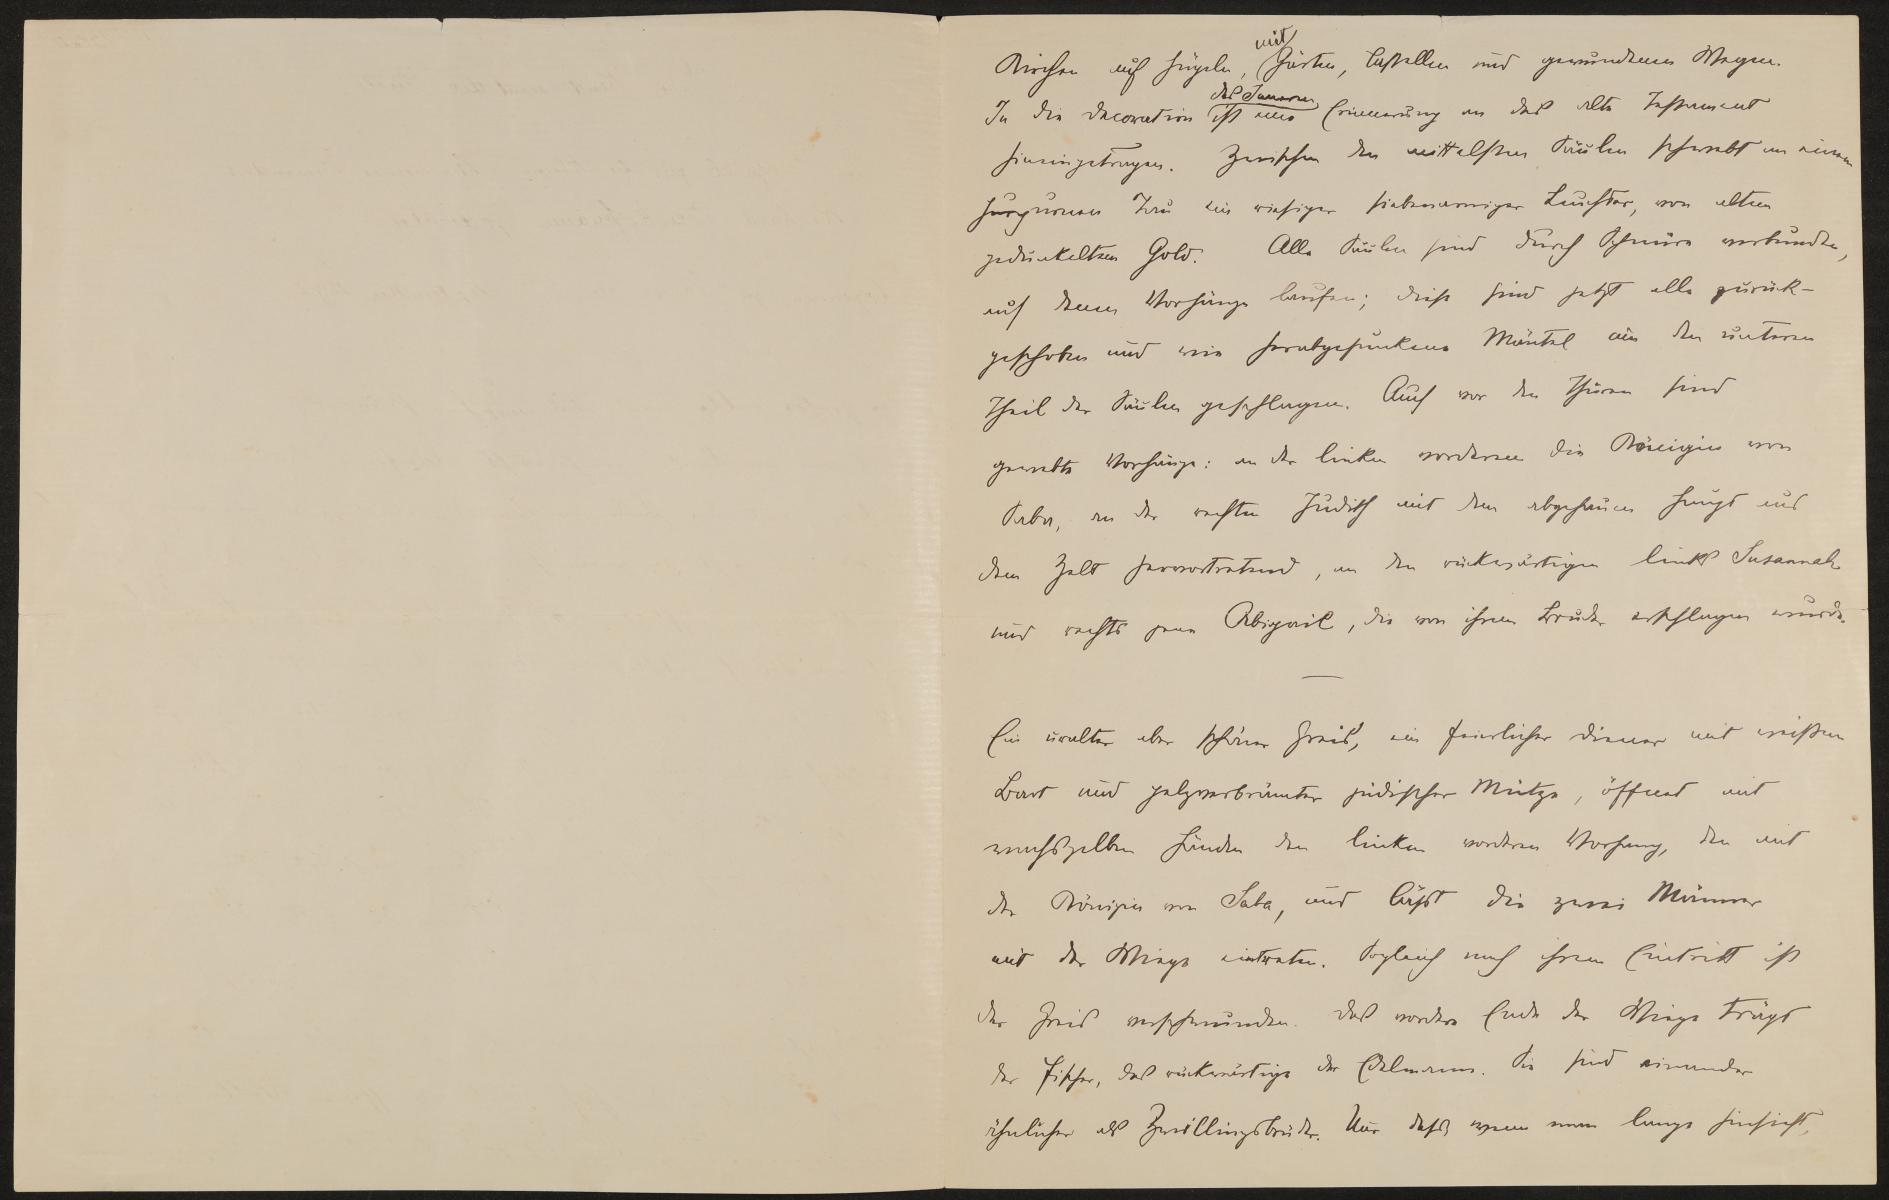 Kirchen auf Hügeln, mit Gärten, Castellen und gewundenen Wegen.
In die Decoration des Inneren ist eine Erinnerung an das alte Testament
hineingetragen. Zwischen den mittelsten Säulen schwebt an einem
purpurnen Tau ein riesiger siebenarmiger Leuchter, von altem
gedunkeltem Gold. Alle Säulen sind durch Schnüre verbunden,
auf denen Vorhänge laufen; diese sind jetzt alle zurück-
geschoben und wie herabgesunkene Mäntel um den unteren
Theil der Säulen geschlagen. Auch vor den Thüren sind
gewebte Vorhänge: an der linken vorderen die Königin von
Saba, an der rechten Judith mit dem abgehauenen Haupt aus
dem Zelt hervortretend, an den rückwärtigen links Susannah
und rechts jene Abigail, die von ihrem Bruder erschlagen wurde.
—
Ein uralter aber schöner Greis, ein feierlicher Diener mit weißem
Bart und pelzverbrämter jüdischer Mütze, öffnet mit
wachsgelben Händen den linken vorderen Vorhang, den mit
der Königin von Saba, und läßt die zwei Männer
mit der Wiege eintreten. Sogleich nach ihrem Eintritt ist
der Greis verschwunden. Das vordere Ende der Wiege trägt
der Fischer, das rückwärtige der Edelmann. Sie sind einander
ähnlicher als Zwillingsbrüder. Nur daß, wenn man lange hinsieht,